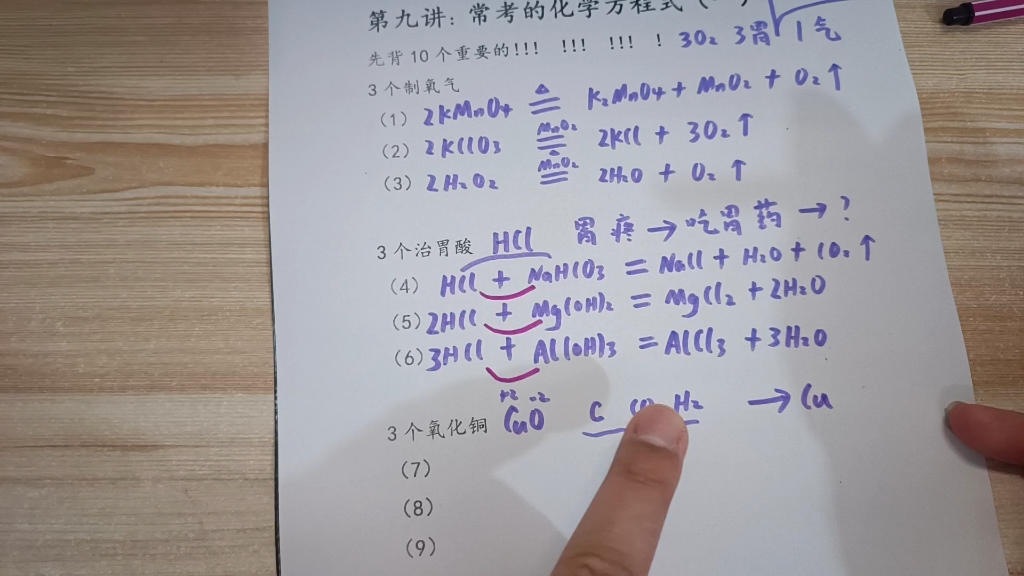 第九讲：常考的化学方程式（
先背10个重要的!!! !!! !!! ! 3O₂ 3胃 1气
3个制氧气
（1）2KMnO₄ ≜ K₂MnO₄ + MnO₂ + O₂↑
（2）2KClO₃ MnO₂ == △ 2KCl + 3O₂↑
（3）2H₂O₂ MnO₂ == 2H₂O + O₂↑
3个治胃酸 HCl 胃疼→吃胃药→?
（4）HCl + NaHCO₃ = NaCl + H₂O + CO₂↑
（5）2HCl + Mg(OH)₂ = MgCl₂ + 2H₂O
（6）3HCl + Al(OH)₃ = AlCl₃ + 3H₂O
+2 -2
3个氧化铜 CuO C CO H₂ → Cu
（7）
（8）
（9）